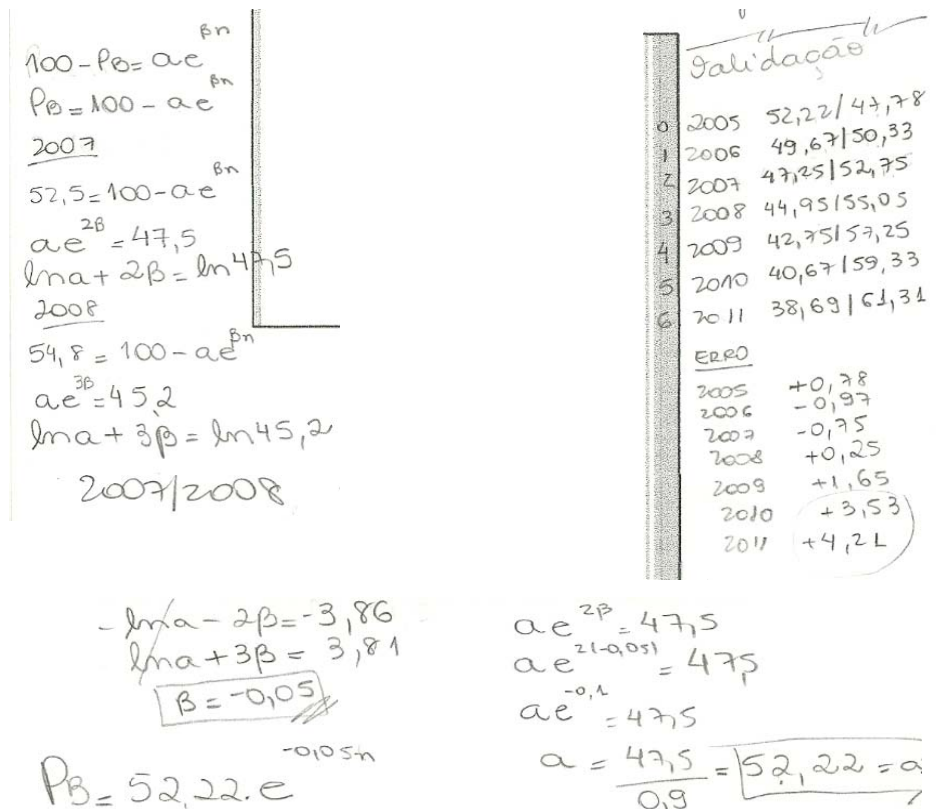 100 - PB = ae^βn
PB = 100 - ae^βn
2007
52,5 = 100 - ae^βn
ae^2β = 47,5
lna + 2β = ln 47,5
2008
54,8 = 100 - ae^βn
ae^3β = 45,2
lna + 3β = ln 45,2
2007/2008
Validação
0 2005 52,22 / 47,78
1 2006 49,67 | 50,33
2 2007 47,25 | 52,75
3 2008 44,95 | 55,05
4 2009 42,75 | 57,25
5 2010 40,67 | 59,33
6 2011 38,69 | 61,31
ERRO
2005 +0,78
2006 -0,97
2007 -0,75
2008 +0,25
2009 +1,65
2010 +3,53
2011 +4,21
- lna - 2β = -3,86
lna + 3β = 3,81
β = -0,05
PB = 52,22 . e^-0,05n
ae^2β = 47,5
ae^2(-0,05) = 47,5
ae^-0,1 = 47,5
a = 47,5/0,9 = 52,22 = a